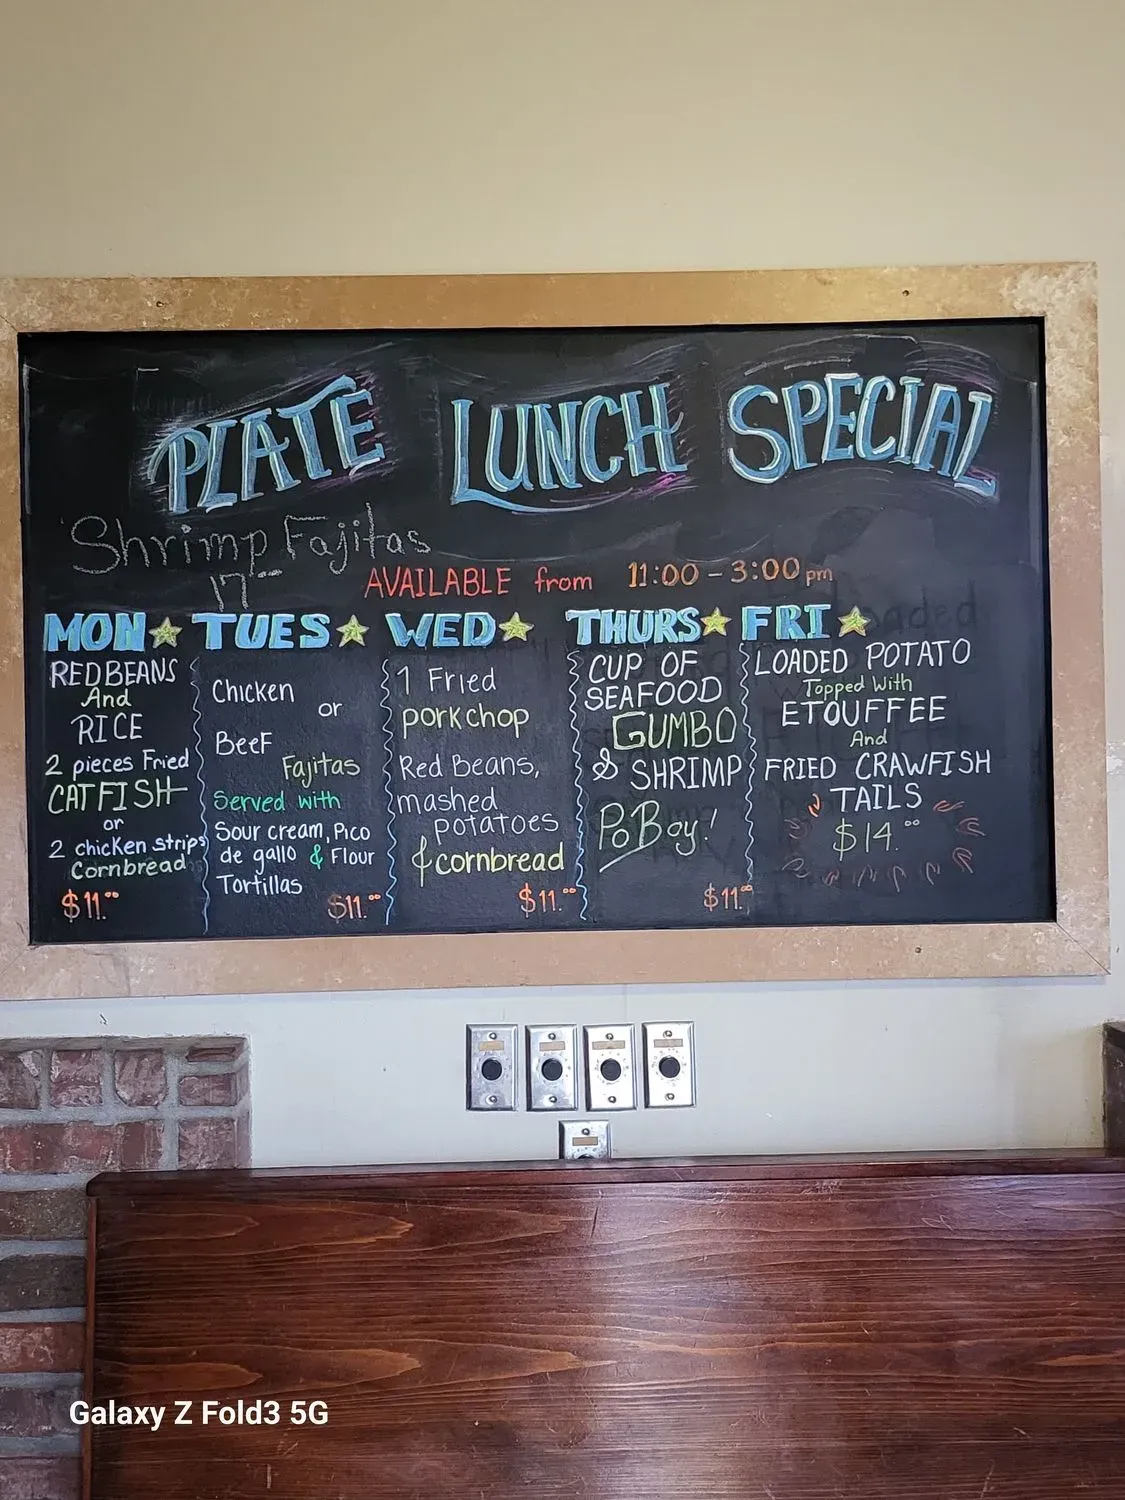 PLATE LUNCH SPECIAL
Shrimp Fajitas
17
AVAILABLE from 11:00 - 3:00 pm
MON
RED BEANS
And
RICE
2 pieces Fried
CATFISH
or
2 chicken strips
Cornbread
$11.00
TUES
Chicken
or
Beef
Fajitas
Served with
Sour cream, Pico
de gallo & Flour
Tortillas
$11.00
WED
1 Fried
porkchop
Red Beans,
mashed
potatoes
& cornbread
$11.00
THURS
CUP OF
SEAFOOD
GUMBO
& SHRIMP
PoBoy!
$11.00
FRI
LOADED POTATO
Topped With
ETOUFFEE
And
FRIED CRAWFISH
TAILS
$14.00
Galaxy Z Fold3 5G